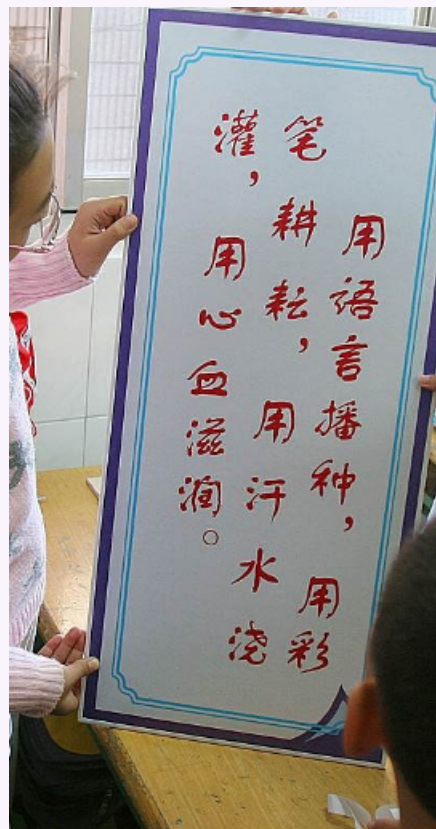 用語言播种，用彩
笔耕耘，用汗水浇
灌，用心血滋润。